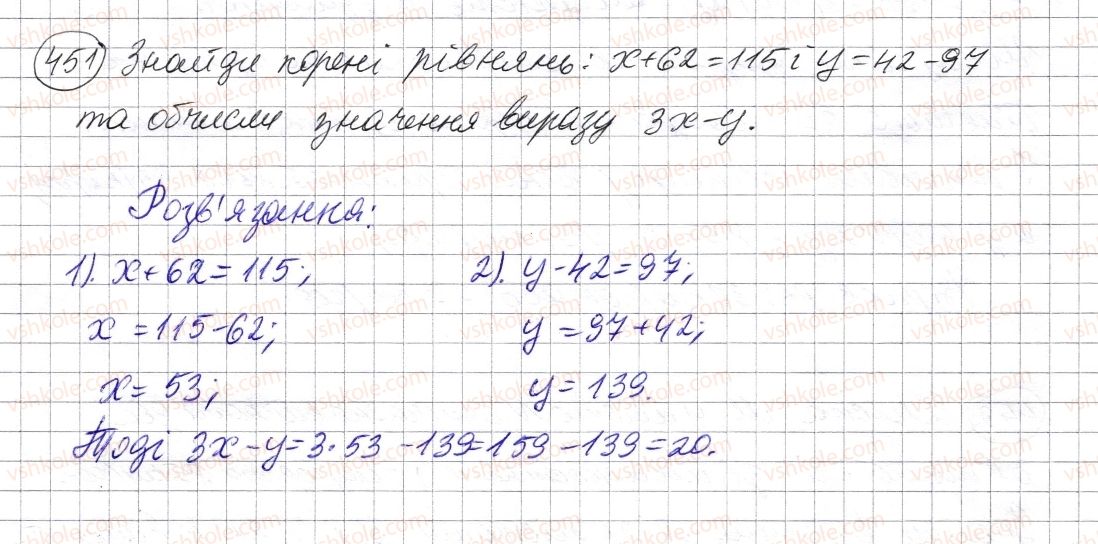 451) Знайди корені рівнянь: x+62=115 і y=42-97
та обчисли значення виразу 3x-y.
Розв'язання:
1). x+62=115; 2). y-42=97;
x=115-62; y=97+42;
x=53; y=139.
Тоді 3x-y=3·53-139=159-139=20.